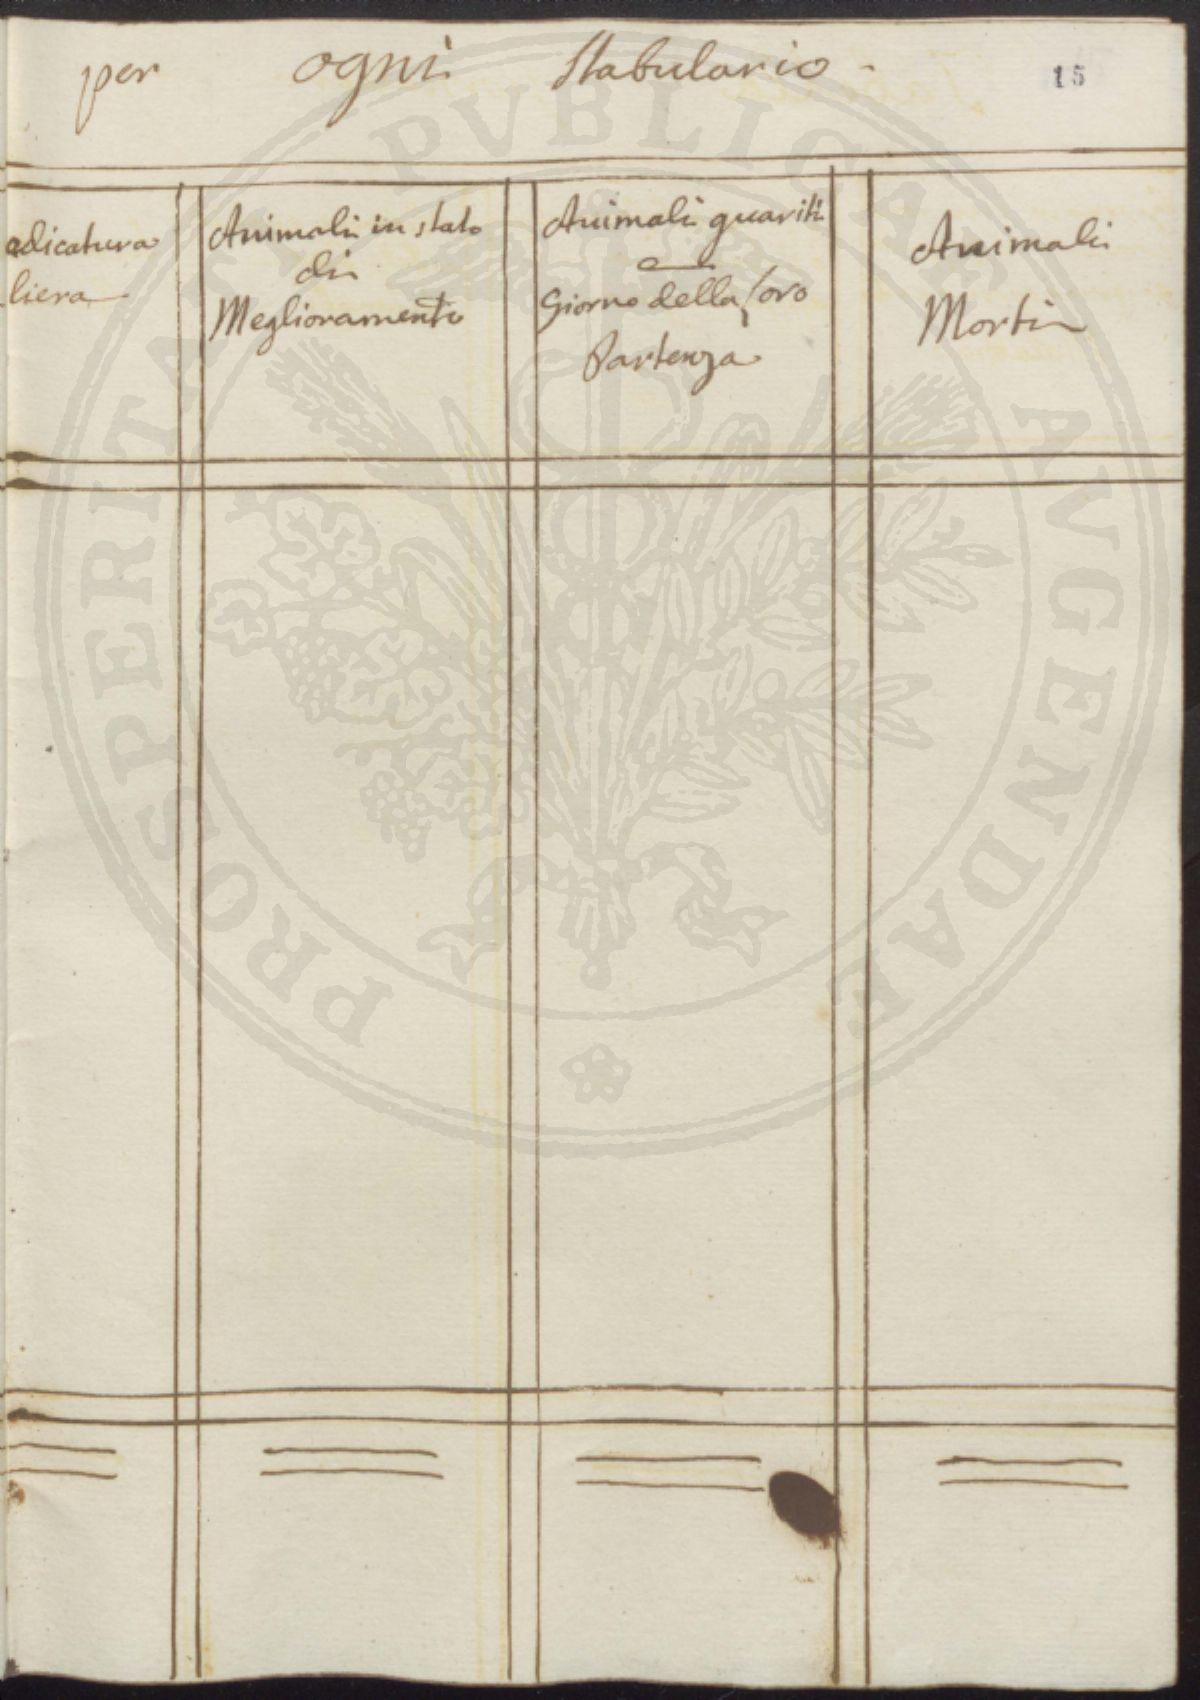 per ogni Stabulario.
15
edicatura
liera
Animali in stato
di
Meglioramento
Animali guariti
e
Giorno della loro
Partenza
Animali
Morti
PROSPERITATI PVBLICAE AVGENDAE